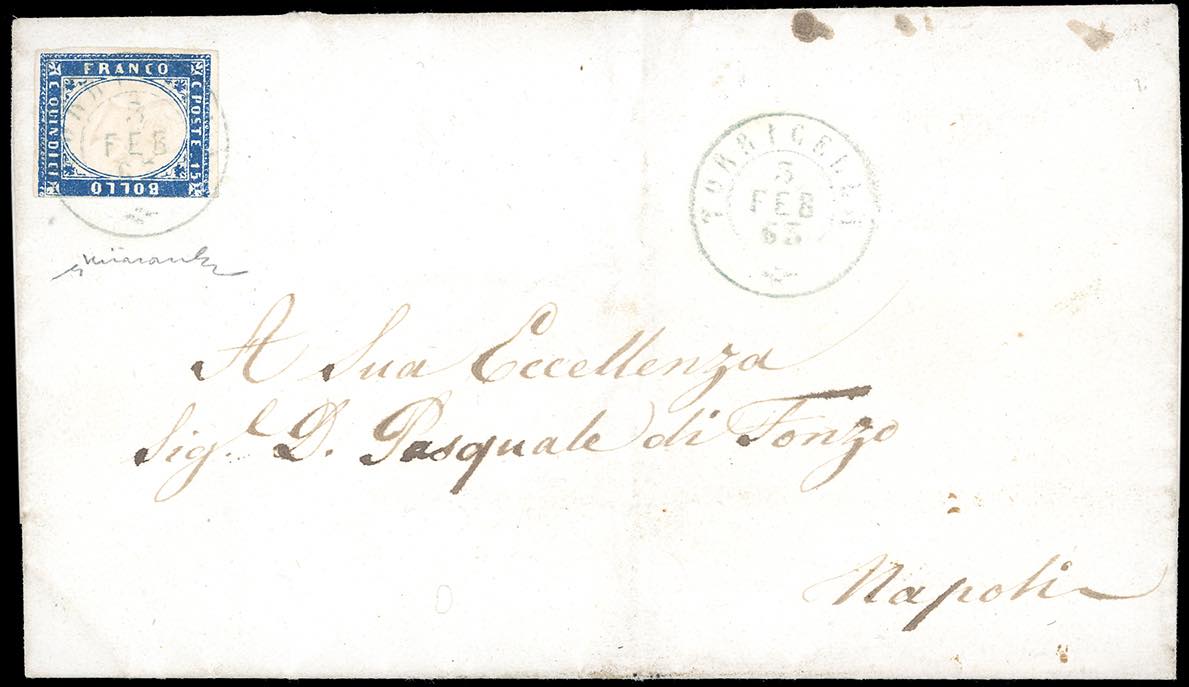 FRANCO
C POSTE. 15
BOLLO
C QUINDICI
FEB
TORRICELLA
3
FEB
63
A Sua Eccellenza
Sig.l D. Pasquale di Fonzo
Napoli